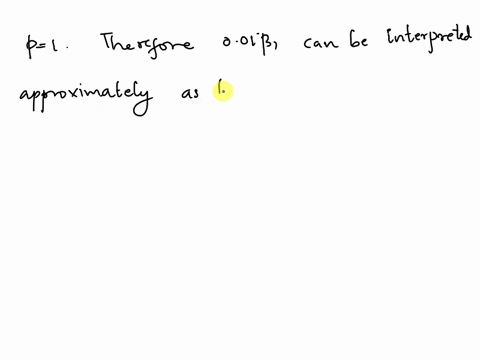 p=1. Therefore 0.01β, can be interpreted
approximately as